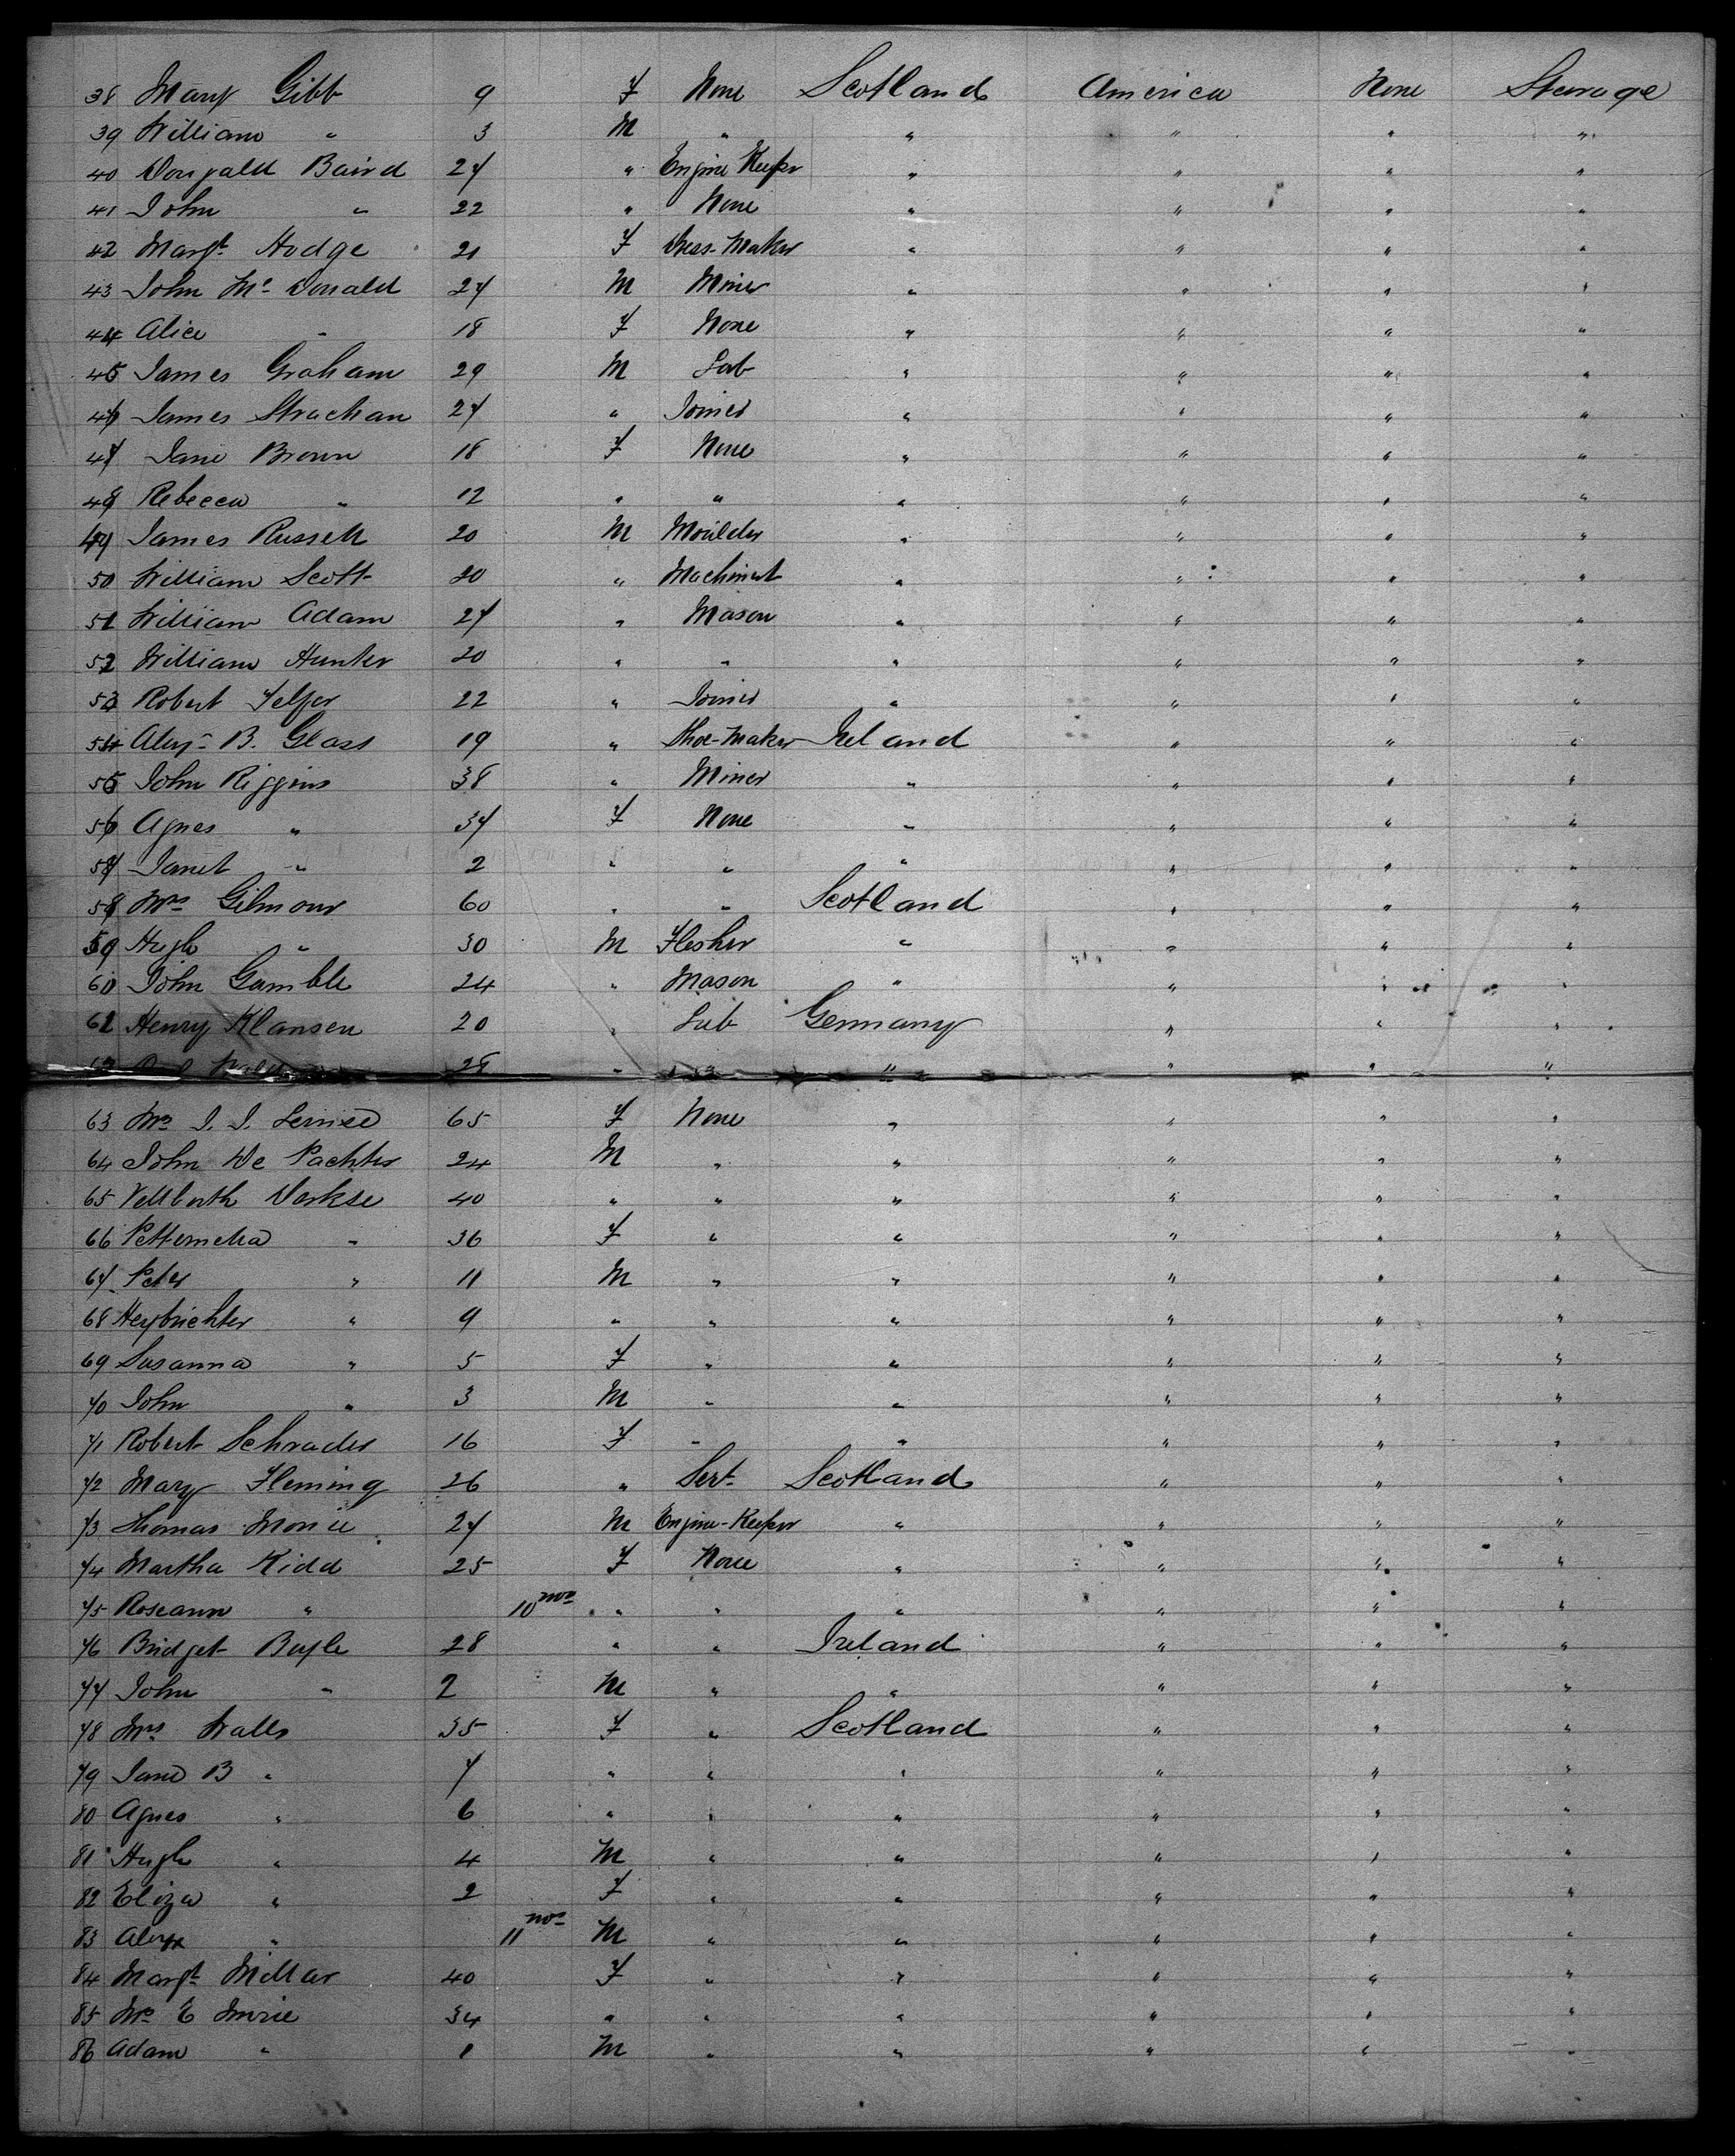 38 Mary Gibb 9 F None Scotland America None Sterage
39 William " 3 M " " " " "
40 Dougald Baird 27 " Engine Keeper " " " "
41 John " 22 " None " " " "
42 Margt. Hodge 21 F Dress-Maker " " " "
43 John Mc Donald 27 M Miner " " " "
44 Alice " 18 F None " " " "
45 James Graham 29 M Lab " " " "
46 James Strachan 27 " Joiner " " " "
47 Jane Brown 18 F None " " " "
48 Rebecca " 12 " " " " " "
49 James Russell 20 M Moulder " " " "
50 William Scott 20 " Machinist " " " "
51 William Adam 27 " Mason " " " "
52 William Hunter 20 " " " " " "
53 Robert Telfer 22 " Joiner " " " "
54 Alexr B. Glass 19 " Shoe-Maker Ireland " " "
55 John Riggins 38 " Miner " " " "
56 Agnes " 37 F None " " " "
57 Janet " 2 " " " " " "
58 Mrs Gilmour 60 " " Scotland " " "
59 Hugh " 30 M Flesher " " " "
60 John Gamble 24 " Mason " " " "
61 Henry Klansen 20 " Lab Germany " " "
62 28 " " " " "
63 Mrs J. J. 65 F None " " " "
64 John De Pachter 24 M " " " " "
65 Vorkse 40 " " " " " "
66 Petternella " 36 F " " " " "
67 Peter " 11 M " " " " "
68 " 9 " " " " " "
69 Susanna " 5 F " " " " "
70 John " 3 M " " " " "
71 Robert Schrader 16 F " " " " "
72 Mary Fleming 26 " Sert. Scotland " " "
73 Thomas 27 M Engine-Keeper " " " "
74 Martha Kidd 25 F None " " " "
75 Roseann " 10 mos " " " " " "
76 Bridget Boyle 28 " " Ireland " " "
77 John " 2 M " " " " "
78 Mrs Walls 35 F " Scotland " " "
79 Jane B " 7 " " " " " "
80 Agnes " 6 " " " " " "
81 Hugh " 4 M " " " " "
82 Eliza " 2 F " " " " "
83 Alexr " 11 mos M " " " " "
84 Margt. Millar 40 F " " " " "
85 Mrs E Imrie 34 " " " " " "
86 Adam " 1 M " " " " "